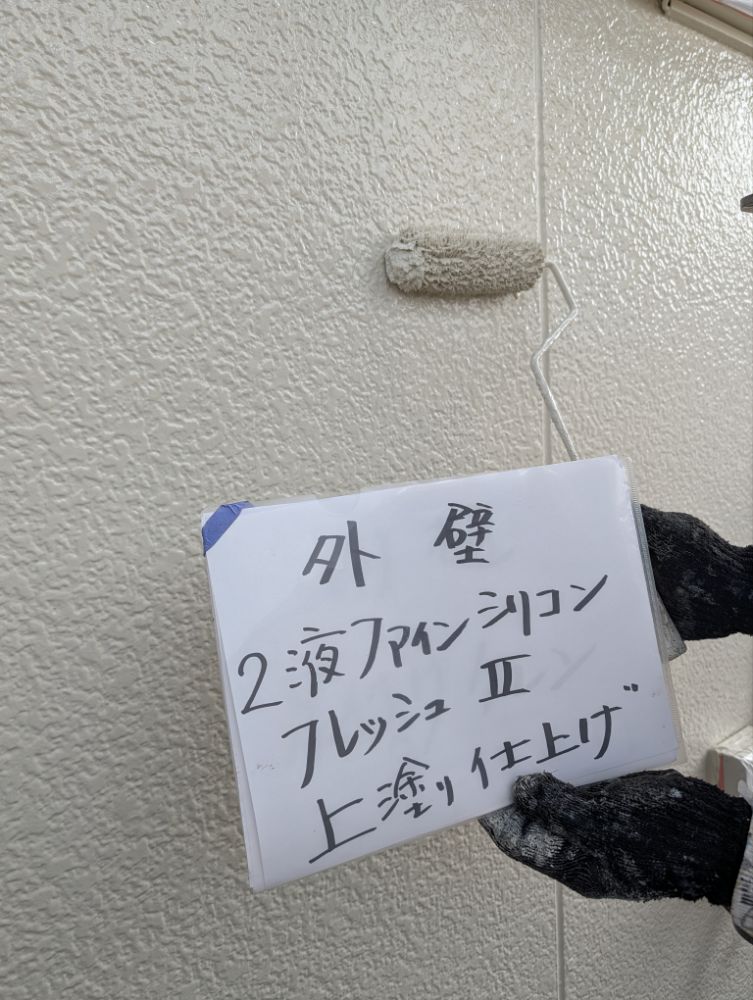 外 壁
2液ファインシリコン
フレッシュ II
上塗り仕上げ